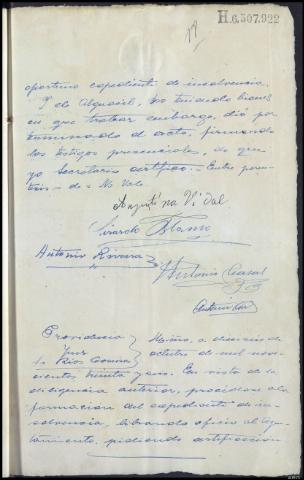 H.6.307.922
oportuno expediente de insolvencia.
Y el Alguacil, no teniendo bienes
en que trabar embargo, dió por
terminado el acto, firmando
los testigos presenciales, de que
yo Secretario certifico. = Entre
de = No Vale
Vidal
Gerardo Blanco
Antonio Rivera
Antonio Casal
Providencia
Juez
Miño, a
octubre de mil nove
cientos treinta y seis. En vista de la
diligencia anterior, procédase a la
formacion del expediente de in-
solvencia, librando oficio al Ayun
tamiento, pidiendo certificacion